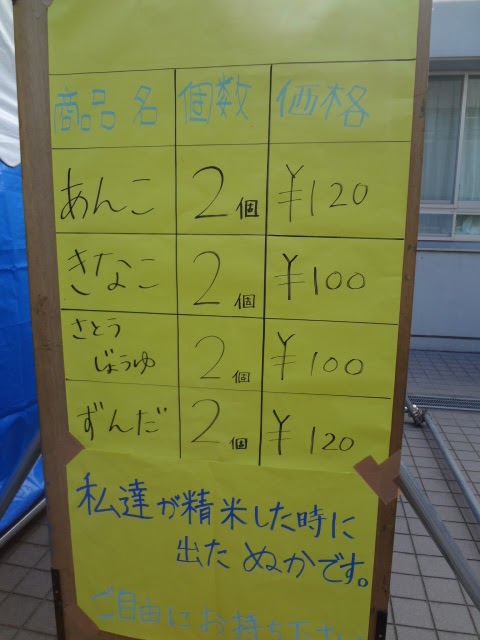 商品名 個数 価格
あんこ 2個 ¥120
きなこ 2個 ¥100
さとう
じょうゆ 2個 ¥100
ずんだ 2個 ¥120
私達が精米した時に
出たぬかです。
ご自由にお持ち下さい